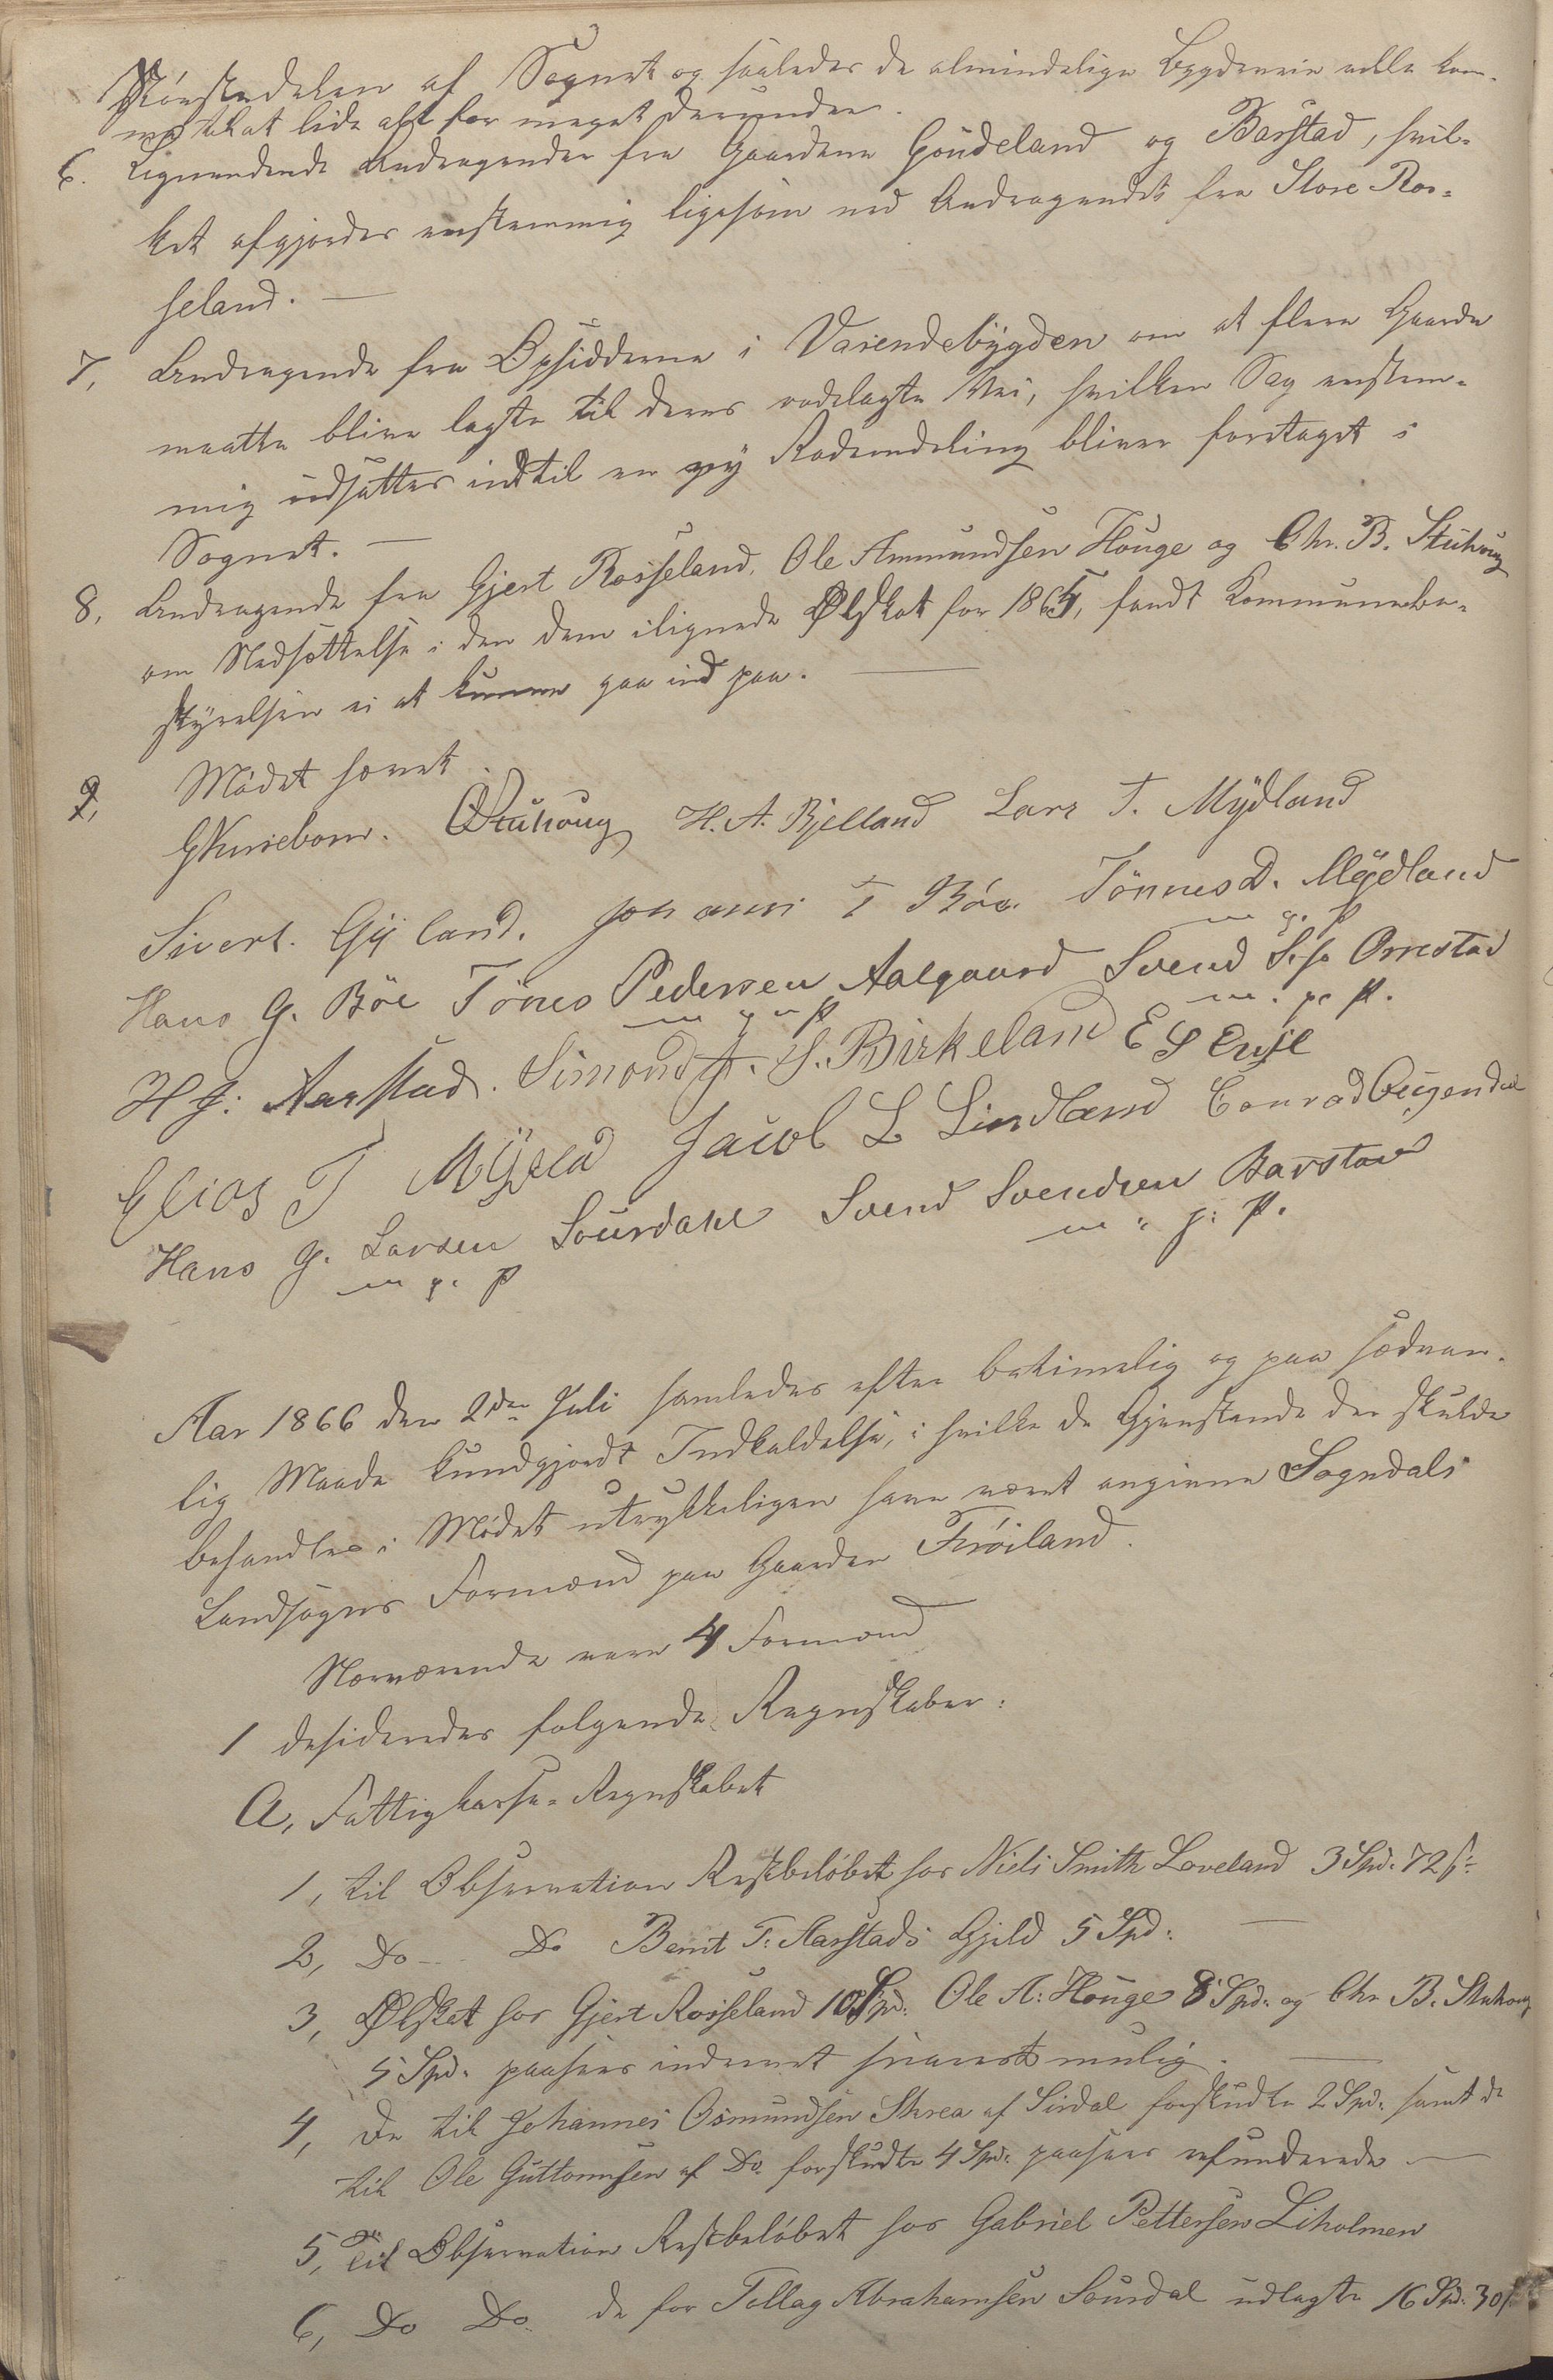 Størstedelen af Sognet og saaledes de almindelige Bygdeveie ville kom-
me til at lide alt for meget derunder.
6. Lignendende Andragender fra Gaardene Goudeland og Barstad, hvil-
ket afgjordes eenstemmig ligesom ved Andragendet fra Store Ros-
seland. —
7, Andragende fra Opsidderne i Vasendebygden om at flere Gaarde
maatte blive lagte til deres rodelagte Vei, hvilken Sag enstem-
mig udsattes indtil en ny Rodeindeling bliver foretaget i
Sognet. —
8, Andragende fra Gjert Rosseland, Ole Ammundsen Houge og Chr. B. Stuhoug
om Nedsættelse i den dem ilignede Ølskat for 1865, fandt Kommunebe-
styrelsen ei at kunne gaa ind paa. —
9, Mødet hævet.
Stuhoug H. A. Bjelland Lars T. Mydland
Sivert Gyland. Johannes T Bøe Tönnes D. Mydland
m. p. p
Hans G. Böe Tönes Pedersen Aalgaard Svend Orrestad
m p p m. p. p.
H J: Aarstad. Simond J. S. Birkeland E S Eige
Elias T Myssa Jacob L Lindland Conrad
Hans G. Larsen Sourdahl Svend Svendsen Barstad
m p. p m p: p.
Aar 1866 den 2den Juli samledes efter betimelig og paa sædvan-
lig Maade kundgjordt Indkaldelse, i hvilke de Gjenstande der skulde
behandles i Mødet utrykkeligen have været angivne Sogndals
Landsogns Formænd paa Gaarden Frøiland.
Nærværende vare 4 Formænd
1 desideredes følgende Regnskaber:
A, Fattigkasse-Regnskabet
1, til Observation Restbeløbet hos Niels Smith Loveland 3 Spd. 72 s
2, Do Do Bernt T. Aarstads Gjeld 5 Spd: —
3, Ølskat hos Gjert Rosseland 10 Spd. Ole A: Houge 8 Spd. og Chr B. Stuhoug
5 Spd. paasees inddrevet snarest mulig. —
4, De til Johannes Osmundsen Skrea af Sirdal forskudte 2 Spd. samt de
til Ole Guttormsen af Do. forskudte 4 Spd. paasees refunderede —
5, Til Observation Restbeløbet hos Gabriel Pettersen Liholmen
6, Do Do. de for Tollag Abrahamsen Sourdal udlagte 16 Spd. 30 s